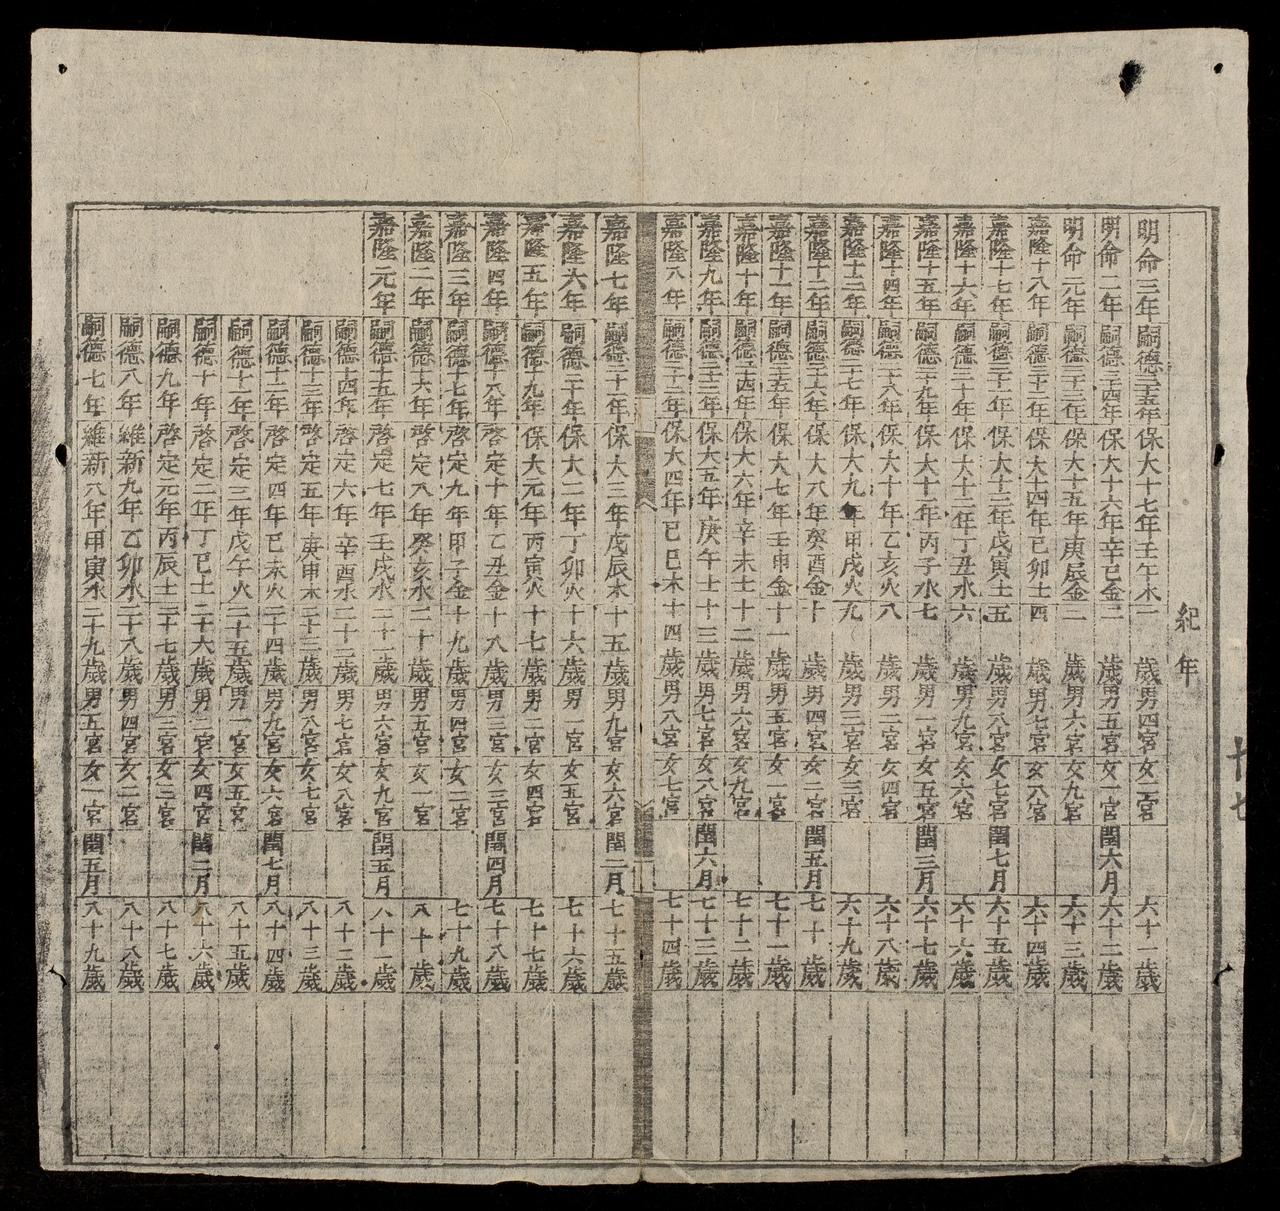 十七
紀年
明命三年嗣德三十五年保大十七年壬午木一歲男四宮女二宮六十一歲
明命二年嗣德三十四年保大十六年辛巳金二歲男五宮女一宮閏六月六十二歲
明命元年嗣德三十三年保大十五年庚辰金三歲男六宮女九宮六十三歲
嘉隆十八年嗣德三十二年保大十四年己卯土四歲男七宮女八宮六十四歲
嘉隆十七年嗣德三十一年保大十三年戊寅土五歲男八宮女七宮閏七月六十五歲
嘉隆十六年嗣德三十年保大十二年丁丑水六歲男九宮女六宮六十六歲
嘉隆十五年嗣德二十九年保大十一年丙子水七歲男一宮女五宮閏三月六十七歲
嘉隆十四年嗣德二十八年保大十年乙亥火八歲男二宮女四宮六十八歲
嘉隆十三年嗣德二十七年保大九年甲戌火九歲男三宮女三宮六十九歲
嘉隆十二年嗣德二十六年保大八年癸酉金十歲男四宮女二宮閏五月七十歲
嘉隆十一年嗣德二十五年保大七年壬申金十一歲男五宮女一宮七十一歲
嘉隆十年嗣德二十四年保大六年辛未土十二歲男六宮女九宮七十二歲
嘉隆九年嗣德二十三年保大五年庚午土十三歲男七宮女八宮閏六月七十三歲
嘉隆八年嗣德二十二年保大四年己巳木十四歲男八宮女七宮七十四歲
嘉隆七年嗣德二十一年保大三年戊辰木十五歲男九宮女六宮閏二月七十五歲
嘉隆六年嗣德二十年保大二年丁卯火十六歲男一宮女五宮七十六歲
嘉隆五年嗣德十九年保大元年丙寅火十七歲男二宮女四宮七十七歲
嘉隆四年嗣德十八年啓定十年乙丑金十八歲男三宮女三宮閏四月七十八歲
嘉隆三年嗣德十七年啓定九年甲子金十九歲男四宮女二宮七十九歲
嘉隆二年嗣德十六年啓定八年癸亥水二十歲男五宮女一宮八十歲
嘉隆元年嗣德十五年啓定七年壬戌水二十一歲男六宮女九宮閏五月八十一歲
嗣德十四年啓定六年辛酉木二十二歲男七宮女八宮八十二歲
嗣德十三年啓定五年庚申木二十三歲男八宮女七宮八十三歲
嗣德十二年啓定四年己未火二十四歲男九宮女六宮閏七月八十四歲
嗣德十一年啓定三年戊午火二十五歲男一宮女五宮八十五歲
嗣德十年啓定二年丁巳土二十六歲男二宮女四宮閏二月八十六歲
嗣德九年啓定元年丙辰土二十七歲男三宮女三宮八十七歲
嗣德八年維新九年乙卯水二十八歲男四宮女二宮八十八歲
嗣德七年維新八年甲寅水二十九歲男五宮女一宮閏五月八十九歲